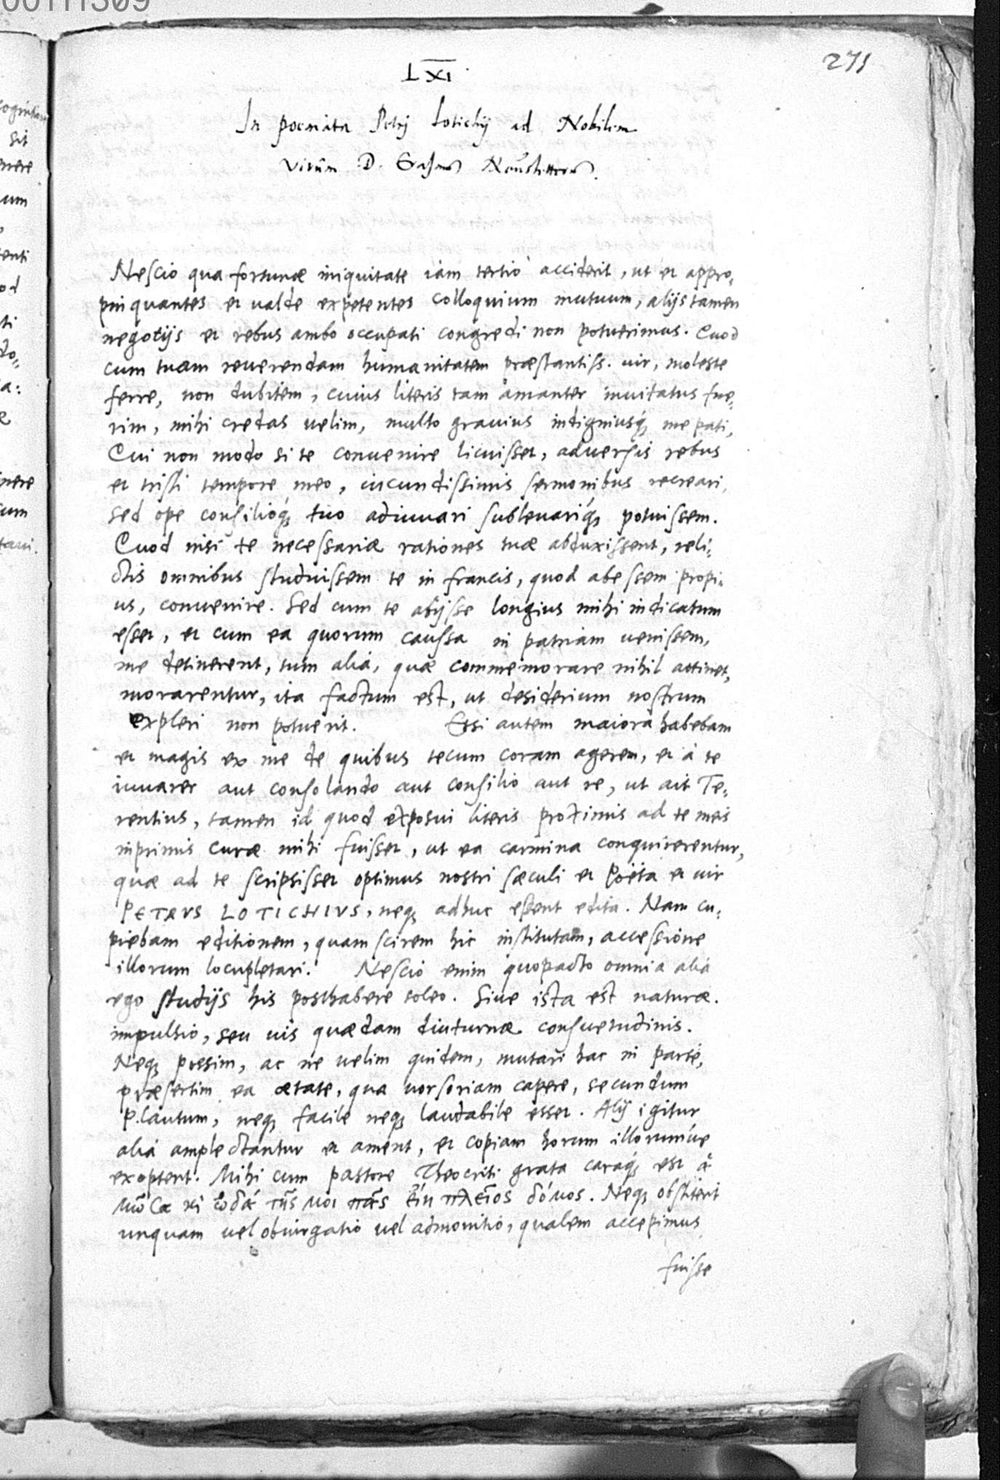 271
LXI
In poemata Petrij Lotichij ad Nobilem
virum D. Erasmum Neustetterum.
Nescio qua fortunae iniquitate iam tertio acciderit, ut et appro,
pinquantes et valde expetentes colloquium mutuum, alijs tamen
negotijs et rebus ambo occupati congredi non potuerimus. Quod
cum tuam reuerendam humanitatem praestantiss. uir, moleste
ferre, non dubitem, cuius literis tam amanter inuitatus fue,
rim, mihi credas uelim, multo grauius indigniusq́; me pati,
Cui non modo si te conuenire licuisset, aduersis rebus
et tristi tempore meo, iucundissimis sermonibus recreari,
Sed ope consilioq́; tuo adiuuari subleuariq́; potuissem.
Quod nisi te necessariae rationes tuae abduxissent, reli,
ctis omnibus studuissem te in francis, quod abessem propi,
us, conuenire. Sed cum te abijsse longius mihi indicatum
esset, et cum ea quorum caussa in patriam uenissem,
me detinerent, tum alia, quae commemorare nihil attinet,
morarentur, ita factum est, ut desiderium nostrum
expleri non potuerit. Etsi autem maiora habebam
et magis ex me de quibus tecum coram agerem, et à te
iuuarer aut consolando aut consilio aut re, ut ait Te,
rentius, tamen id quod exposui literis proximis ad te meis
inprimis curae mihi fuisset, ut ea carmina conquirerentur,
quae ad te scripsisset optimus nostri saeculi et Poëta et uir
PETRVS LOTICHIVS, neq; adhuc essent edita. Nam cu,
piebam editionem, quam scirem hic institutam, accessione
illorum locupletari. Nescio enim quopacto omnia alia
ego studijs his posthabere soleo. Siue ista est naturae
impulsio, seu uis quaedam diuturnae consuetudinis.
Neq; possim, ac ne uelim quidem, mutari hac in parte,
praesertim ea aetate, qua uorsoriam capere, secundum
Plautum, neq; facile neq; laudabile esset. Alij igitur
alia amplectantur et ament, et copiam horum illorumúe
exoptent. Mihi cum pastore Theocriti grata caraq́; est ἁ
Μῶσα καὶ ᾠδά τῆς μοι πᾶς εἴη πλεῖος δόμος. Neq; obstiterit
unquam uel obiurgatio uel admonitio, qualem accepimus
fuisse